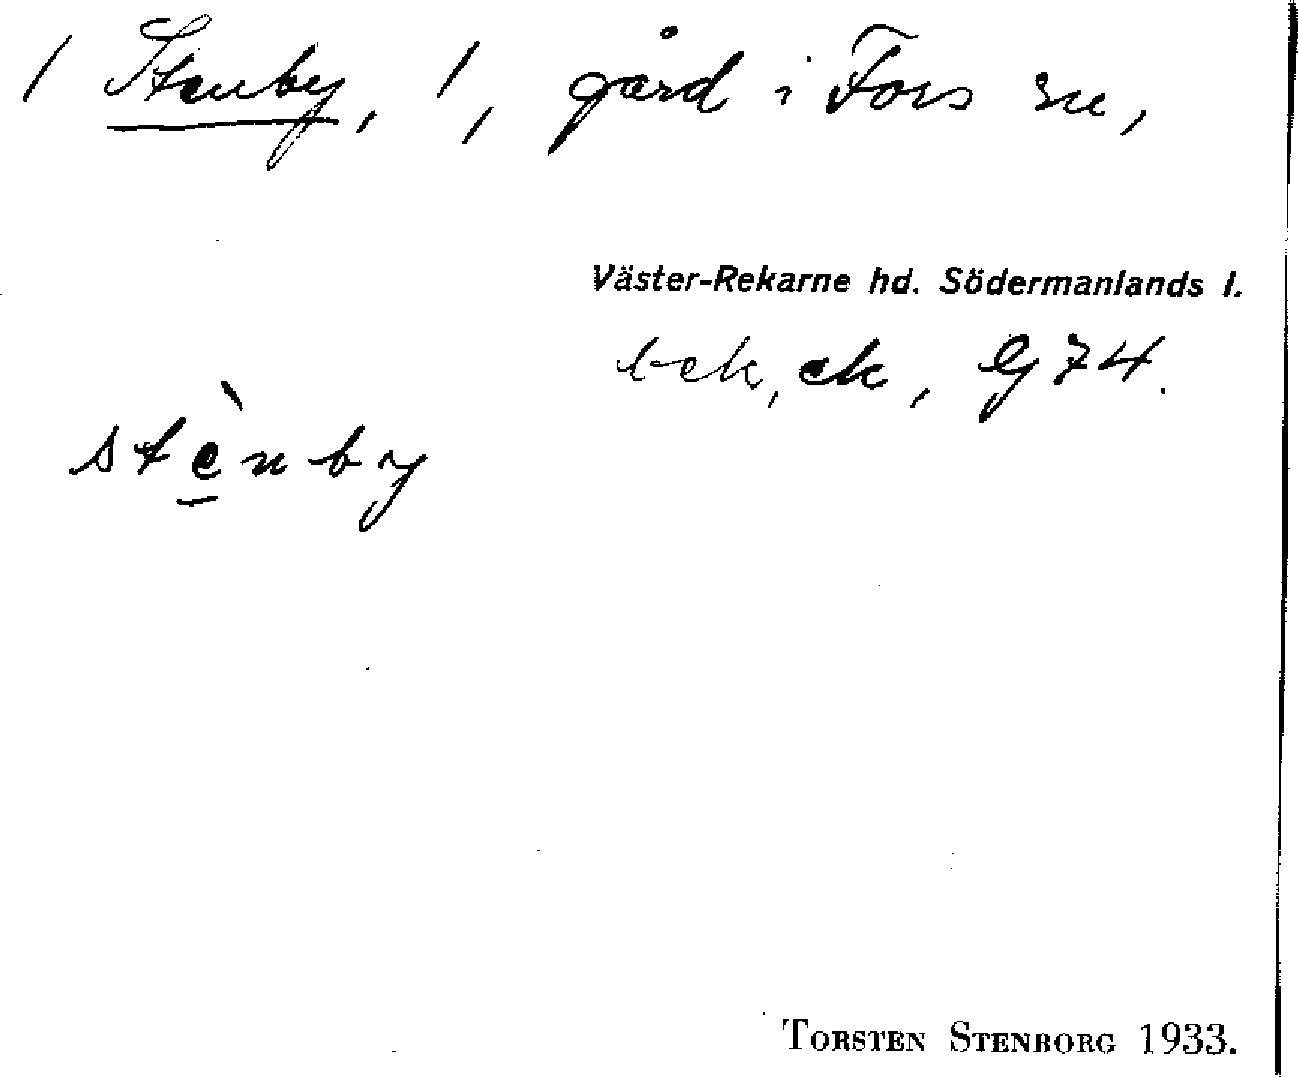 / Stenby, /, gård i Fors sn,
Väster-Rekarne hd. Södermanlands l.
bek, ek, G74.
stènby
TORSTEN STENBORG 1933.